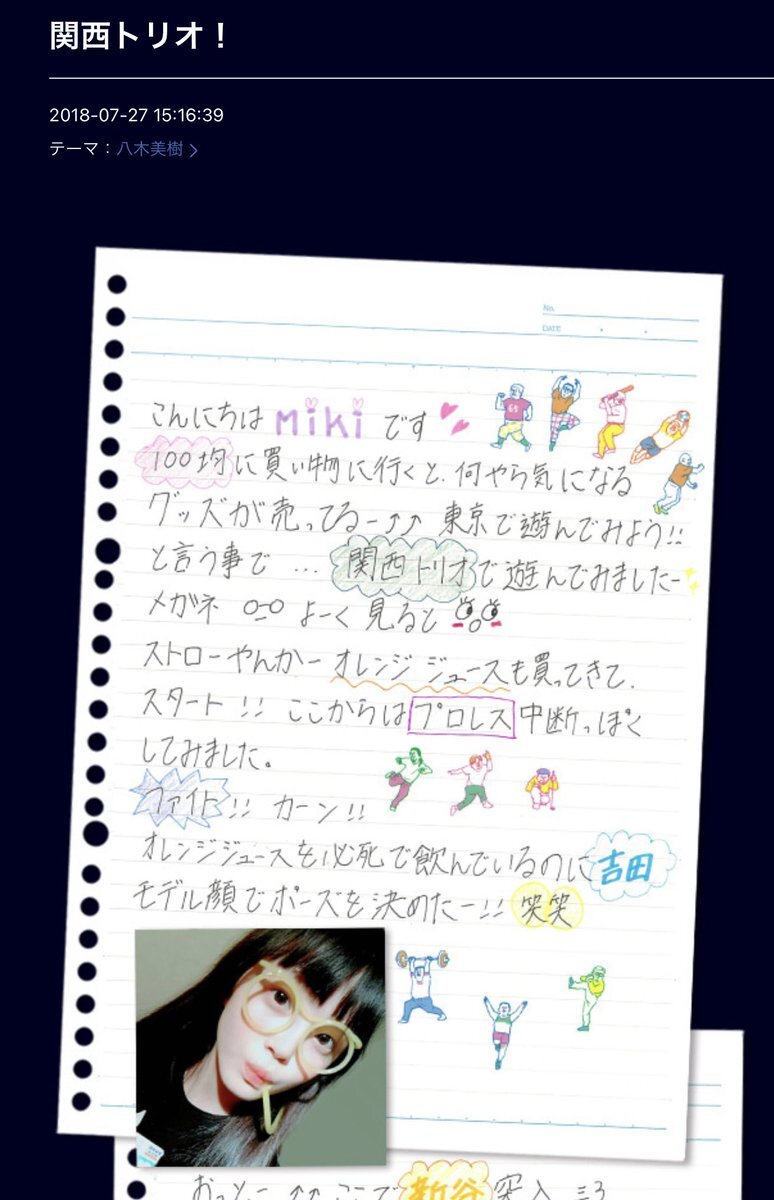 関西トリオ！
2018-07-27 15:16:39
テーマ：八木美樹
No.
DATE
こんにちは miki です
100均に買い物に行くと、何やら気になる
グッズが売ってるー↑↑ 東京で遊んでみよう!!
と言う事で … 関西トリオで遊んでみましたー
メガネ よーく見ると
ストローやんかー オレンジジュースも買ってきて、
スタート!! ここからはプロレス中断っぽく
してみました。
ファイト!! カーン!!
オレンジジュースを必死で飲んでいるのに 吉田
モデル顔でポーズを決めたー!! 笑笑
おっとこ ↑↑ ここで 新谷 突入